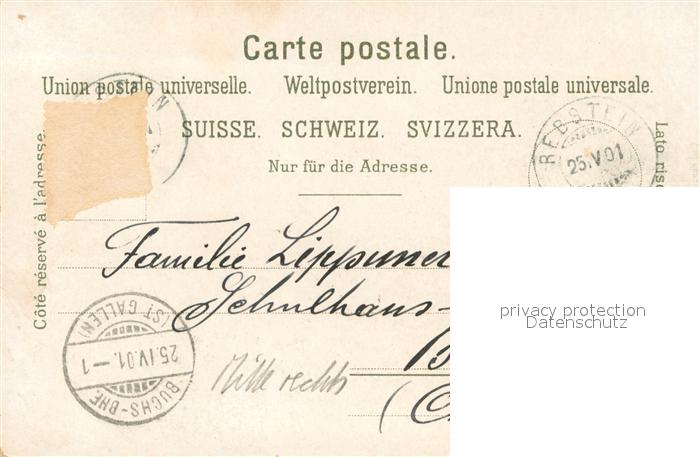 Carte postale.
Union postale universelle. Weltpostverein. Unione postale universale.
SUISSE. SCHWEIZ. SVIZZERA.
Nur für die Adresse.
Côté réservé à l'adresse.
Lato rise
REBSTEIN
25.V.01
Familie Lippuner
Schulhaus-
B
(C
privacy protection
Datenschutz
(ST GALLEN)
25.IV.01.–1
BUCHS-BHF.
Mitte rechts